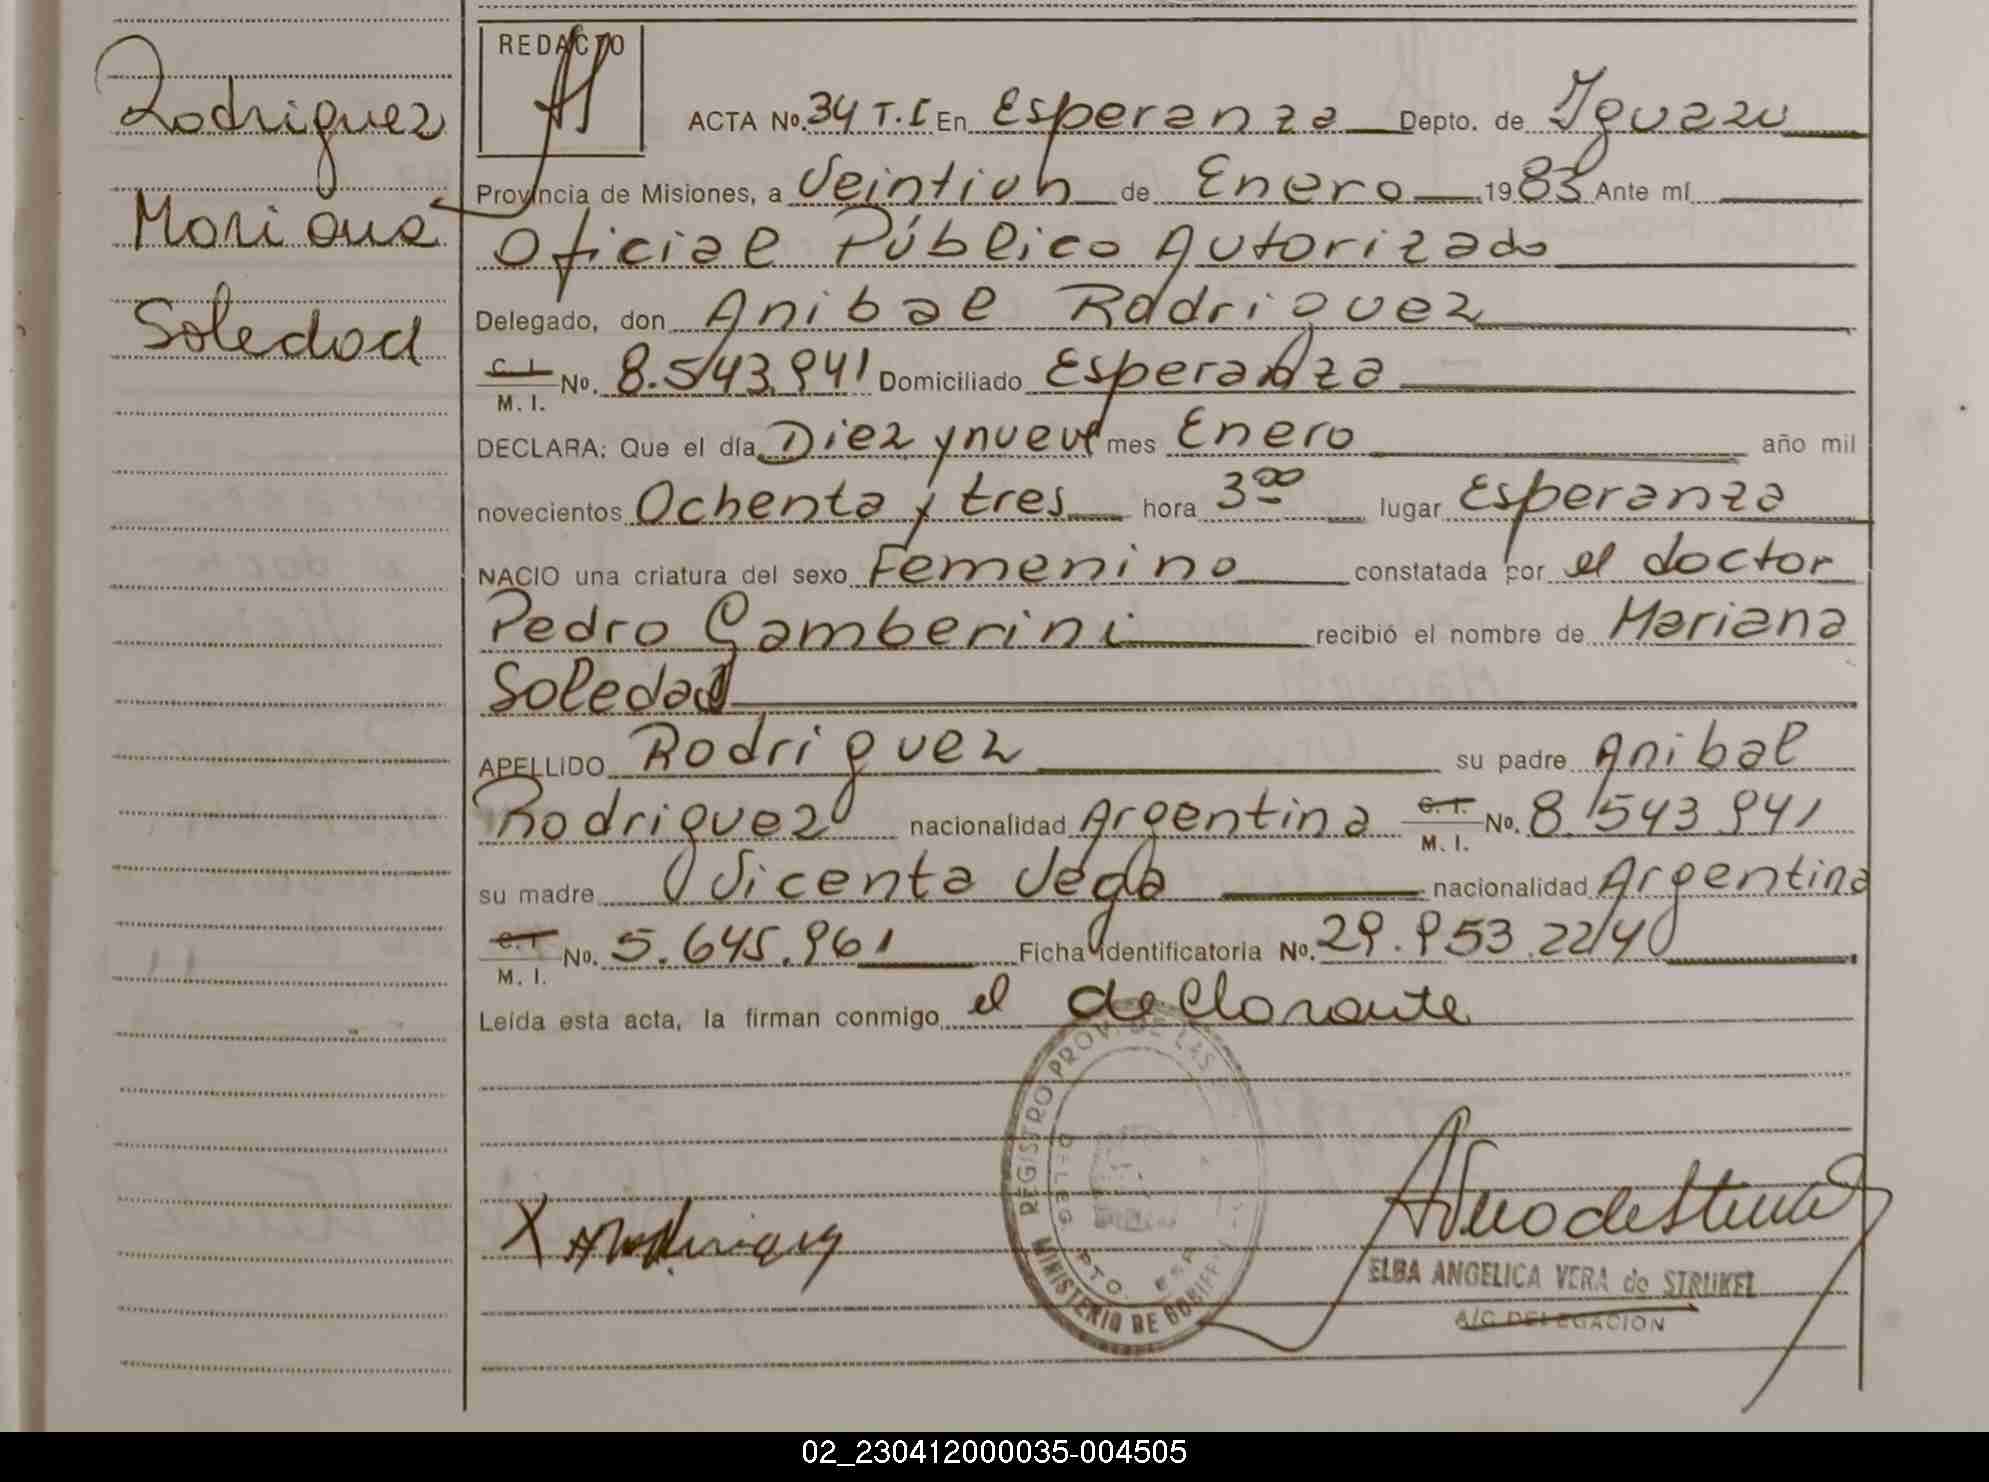 Rodriguez
Mariana
Soledad
REDACTO
ACTA No. 34 T. I En Esperanza Depto. de Iguazu
Provincia de Misiones, a Veintiun de Enero 1983 Ante mí
Oficial Público Autorizado
Delegado, don Anibal Rodriguez
C. I.
M. I. No. 8.543.941 Domiciliado Esperanza
DECLARA: Que el día Diez y nueve mes Enero año mil
novecientos Ochenta y tres hora 3 00 lugar Esperanza
NACIO una criatura del sexo Femenino constatada por el doctor
Pedro Gamberini recibió el nombre de Mariana
Soledad
APELLIDO Rodriguez su padre Anibal
Rodriguez nacionalidad Argentina C. I. M. I. No. 8.543.941
su madre Vicenta Vega nacionalidad Argentina
C. I. M. I. No. 5.645.961 Ficha identificatoria No. 29.953.224
Leída esta acta, la firman conmigo el declarante
REGISTRO PROV. DE LAS
MINISTERIO DE GOBIER
ELBA ANGELICA VERA de STRUKEL
A/C DELEGACION
02_230412000035-004505